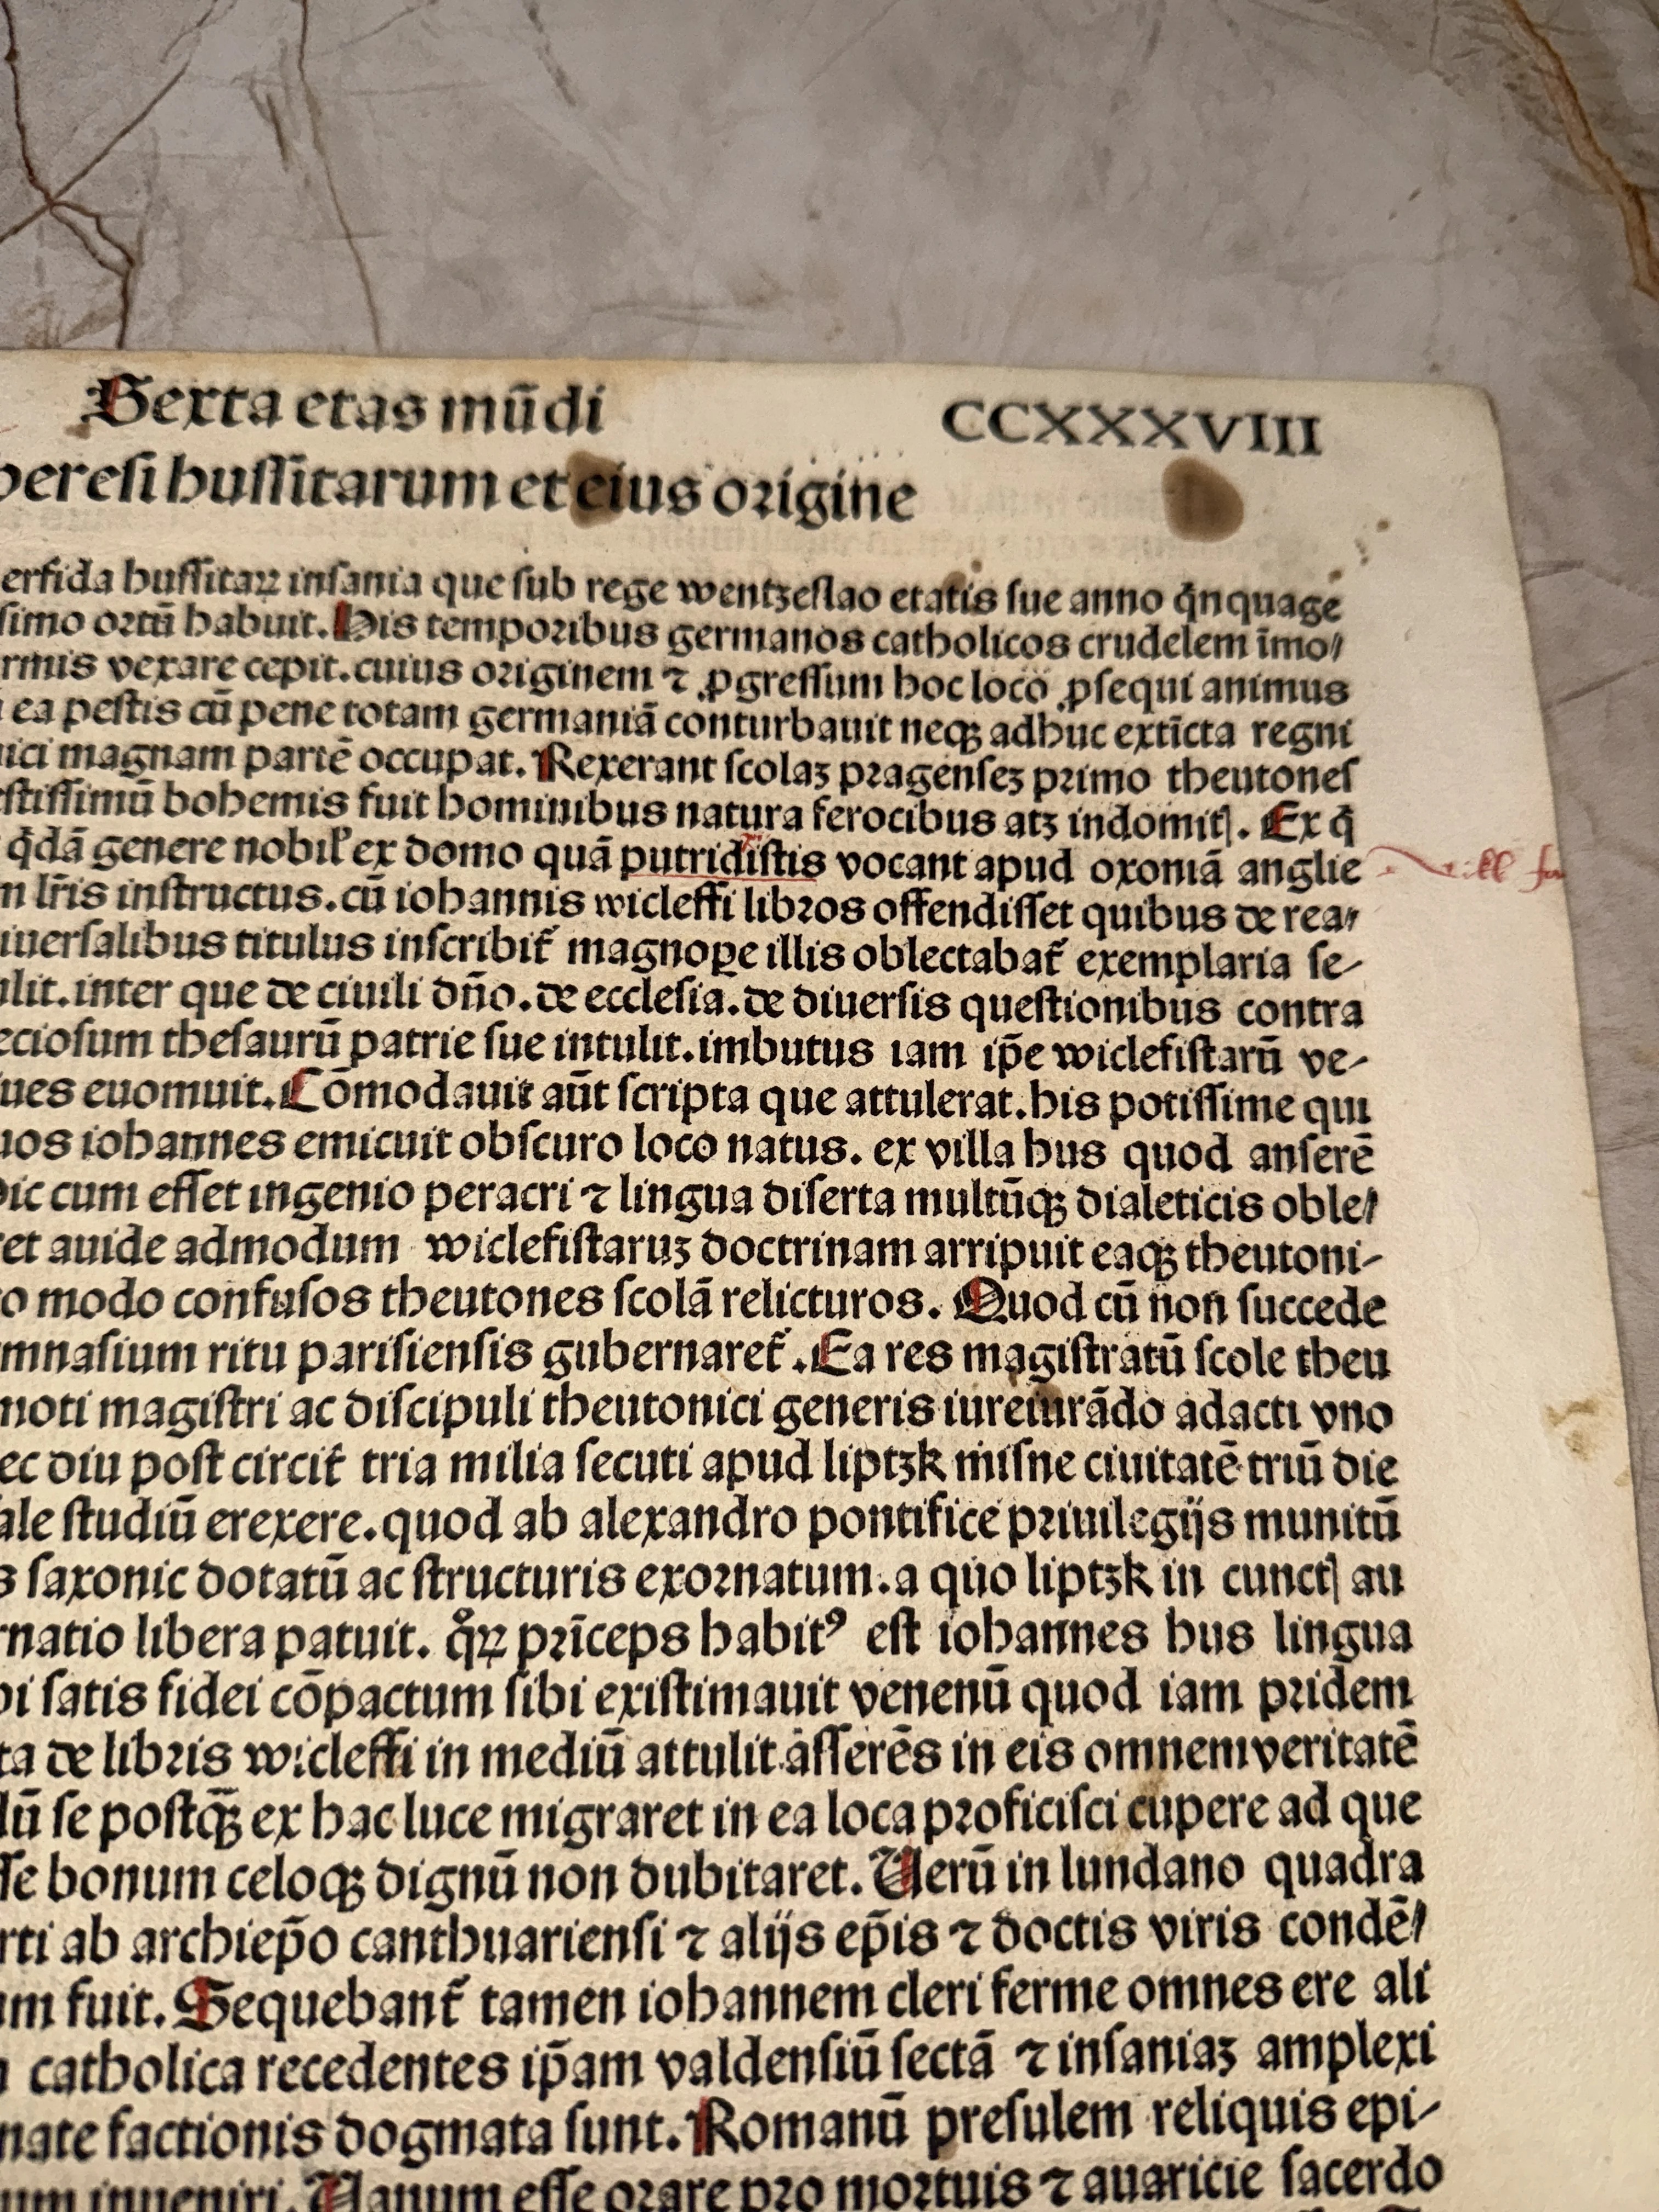 Sexta etas mūdi CCXXXVIII
heresi hussitarum et eius origine
erfida hussitaꝝ insania que sub rege wentzeslao etatis sue anno q̄nquage
simo ortū habuit. His temporibus germanos catholicos crudelem īmo⸗
rmis vexare cepit. cuius originem ⁊ ꝓgressum hoc loco ꝓsequi animus
ea pestis cū pene totam germaniā conturbauit neqꝫ adhuc extīcta regni
ici magnam partē occupat. Rexerant scolaꝫ pragenseꝫ primo theutones
stissimū bohemis fuit hominibus natura ferocibus atꝫ indomitꝭ. Ex q̄
q̄dā genere nobil̓ ex domo quā putridistis vocant apud oxoniā anglie
m lr̄is instructus. cū iohannis wicleffi libros offendisset quibus de rea⸗
iuersalibus titulus inscribit᷑ magnoꝑe illis oblectabat᷑ exemplaria se⸗
lit. inter que de ciuili dn̄o. de ecclesia. de diuersis questionibus contra
eciosum thesaurū patrie sue intulit. imbutus iam ip̄e wiclefistarū ve⸗
ues euomuit. Cōmodauit aūt scripta que attulerat. his potissime qui
uos iohannes emicuit obscuro loco natus. ex villa hus quod anserē
ic cum esset ingenio peracri ⁊ lingua diserta multūqꝫ dialeticis oble⸗
et auide admodum wiclefistaruꝫ doctrinam arripuit eaqꝫ theutoni⸗
o modo confusos theutones scolā relicturos. Quod cū non succede
mnasium ritu parisiensis gubernaret᷑. Ea res magistratū scole theu
moti magistri ac discipuli theutonici generis iureiurādo adacti vno
ec diu post circit᷑ tria milia secuti apud liptzk misne ciuitatē triū die
ale studiū erexere. quod ab alexandro pontifice priuilegijs munitū
s saxonic dotatū ac structuris exornatum. a quo liptzk in cunctꝭ au
rnatio libera patuit. qͦꝝ prīceps habitꝰ est iohannes hus lingua
i satis fidei cōpactum sibi existimauit venenū quod iam pridem
ta de libris wicleffi in mediū attulit asserēs in eis omnem veritatē
lū se postqꝫ̄ ex hac luce migraret in ea loca proficisci cupere ad que
sse bonum celoqꝫ dignū non dubitaret. Uerū in lundano quadra
rti ab archiep̄o canthuariensi ⁊ alijs ep̄is ⁊ doctis viris condē⸗
m fuit. Sequebant᷑ tamen iohannem cleri ferme omnes ere ali
catholica recedentes ip̄am valdensiū sectā ⁊ insaniaꝫ amplexi
nate factionis dogmata sunt. Romanū presulem reliquis epi⸗
um inueniri. Uanum esse orare pro mortuis ⁊ auaricie sacerdo